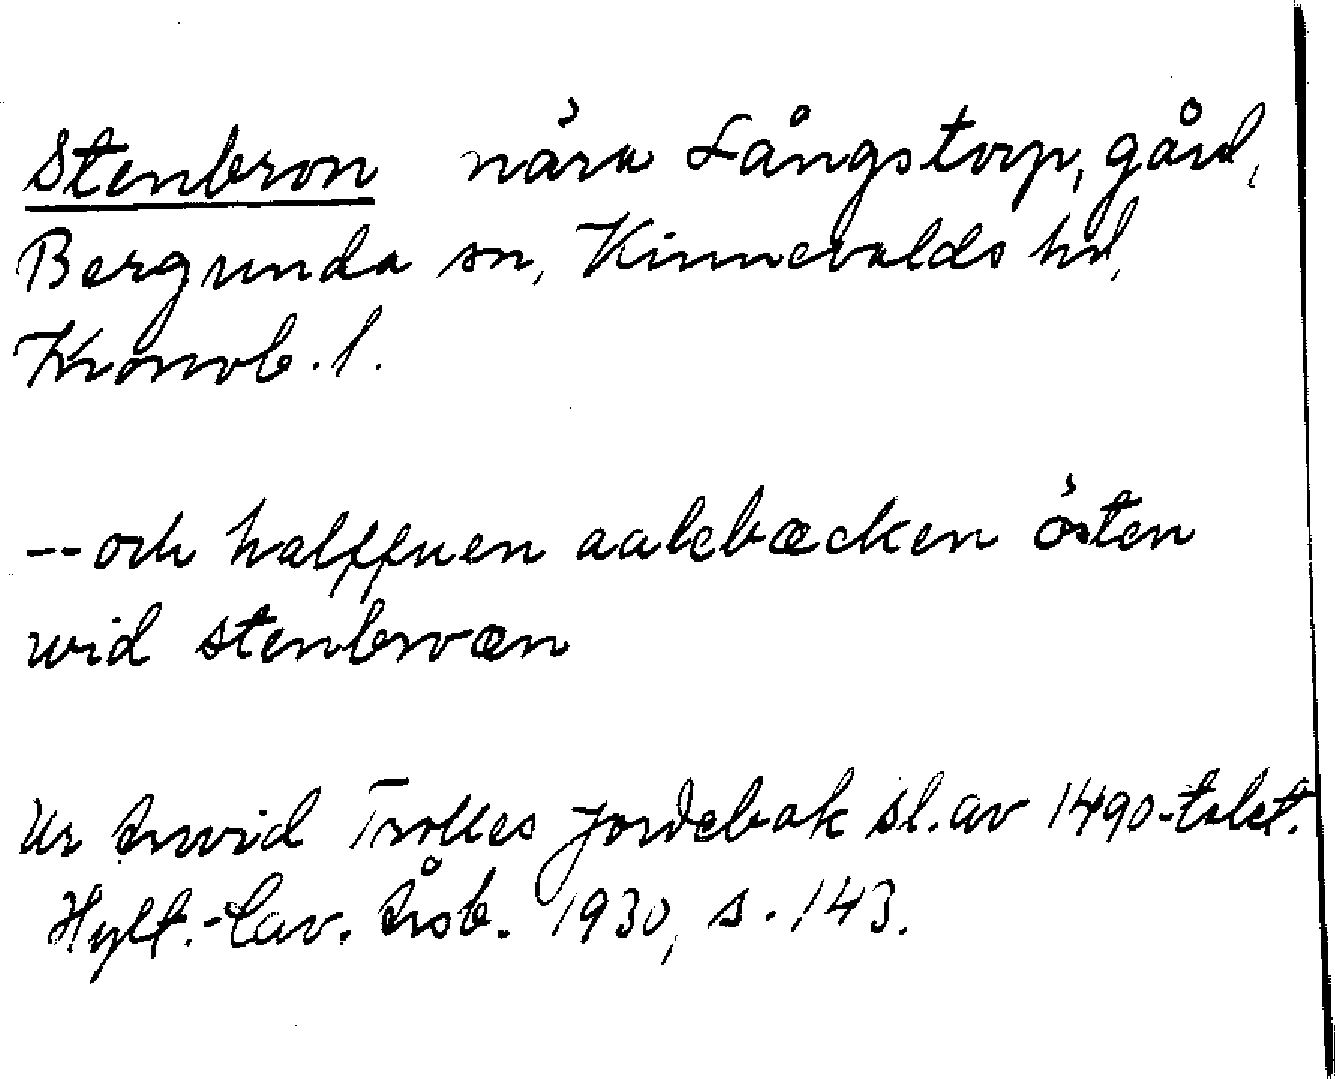 Stenbron nära Långstorp, gård,
Bergunda sn, Kinnevalds hd,
Kronob. l.
-- och halffuen aalebæcken östen
wid stenbroæn
Ur Arvid Trolles jordebok sl. av 1490-talet.
Hylt.-Cav. Årsb. 1930, s. 143.